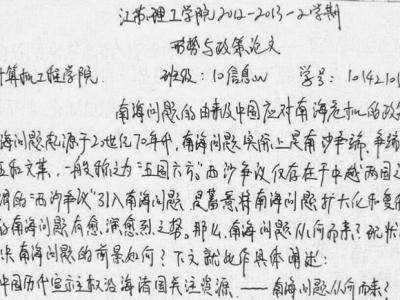 江苏理工学院2012-2013-2学期
形势与政策论文
计算机工程学院 班级:10信息W 学号:10142101
南海问题的由来及中国应对南海危机的政
海问题起源于20世纪70年代,南海问题实际上是南沙争端,争端
和文莱,一般称之为"五国六方"西沙争议仅存在于中越两国之
谓的"西沙争议"引入南海问题,是蓄意将南海问题扩大化和复
南海问题有愈演愈烈之势。那么,南海问题从何而来?现状
决南海问题的前景如何?下文就此作具体阐述:
中国历代宣示主权沿海诸国关注资源 —— 南海问题从何而来?